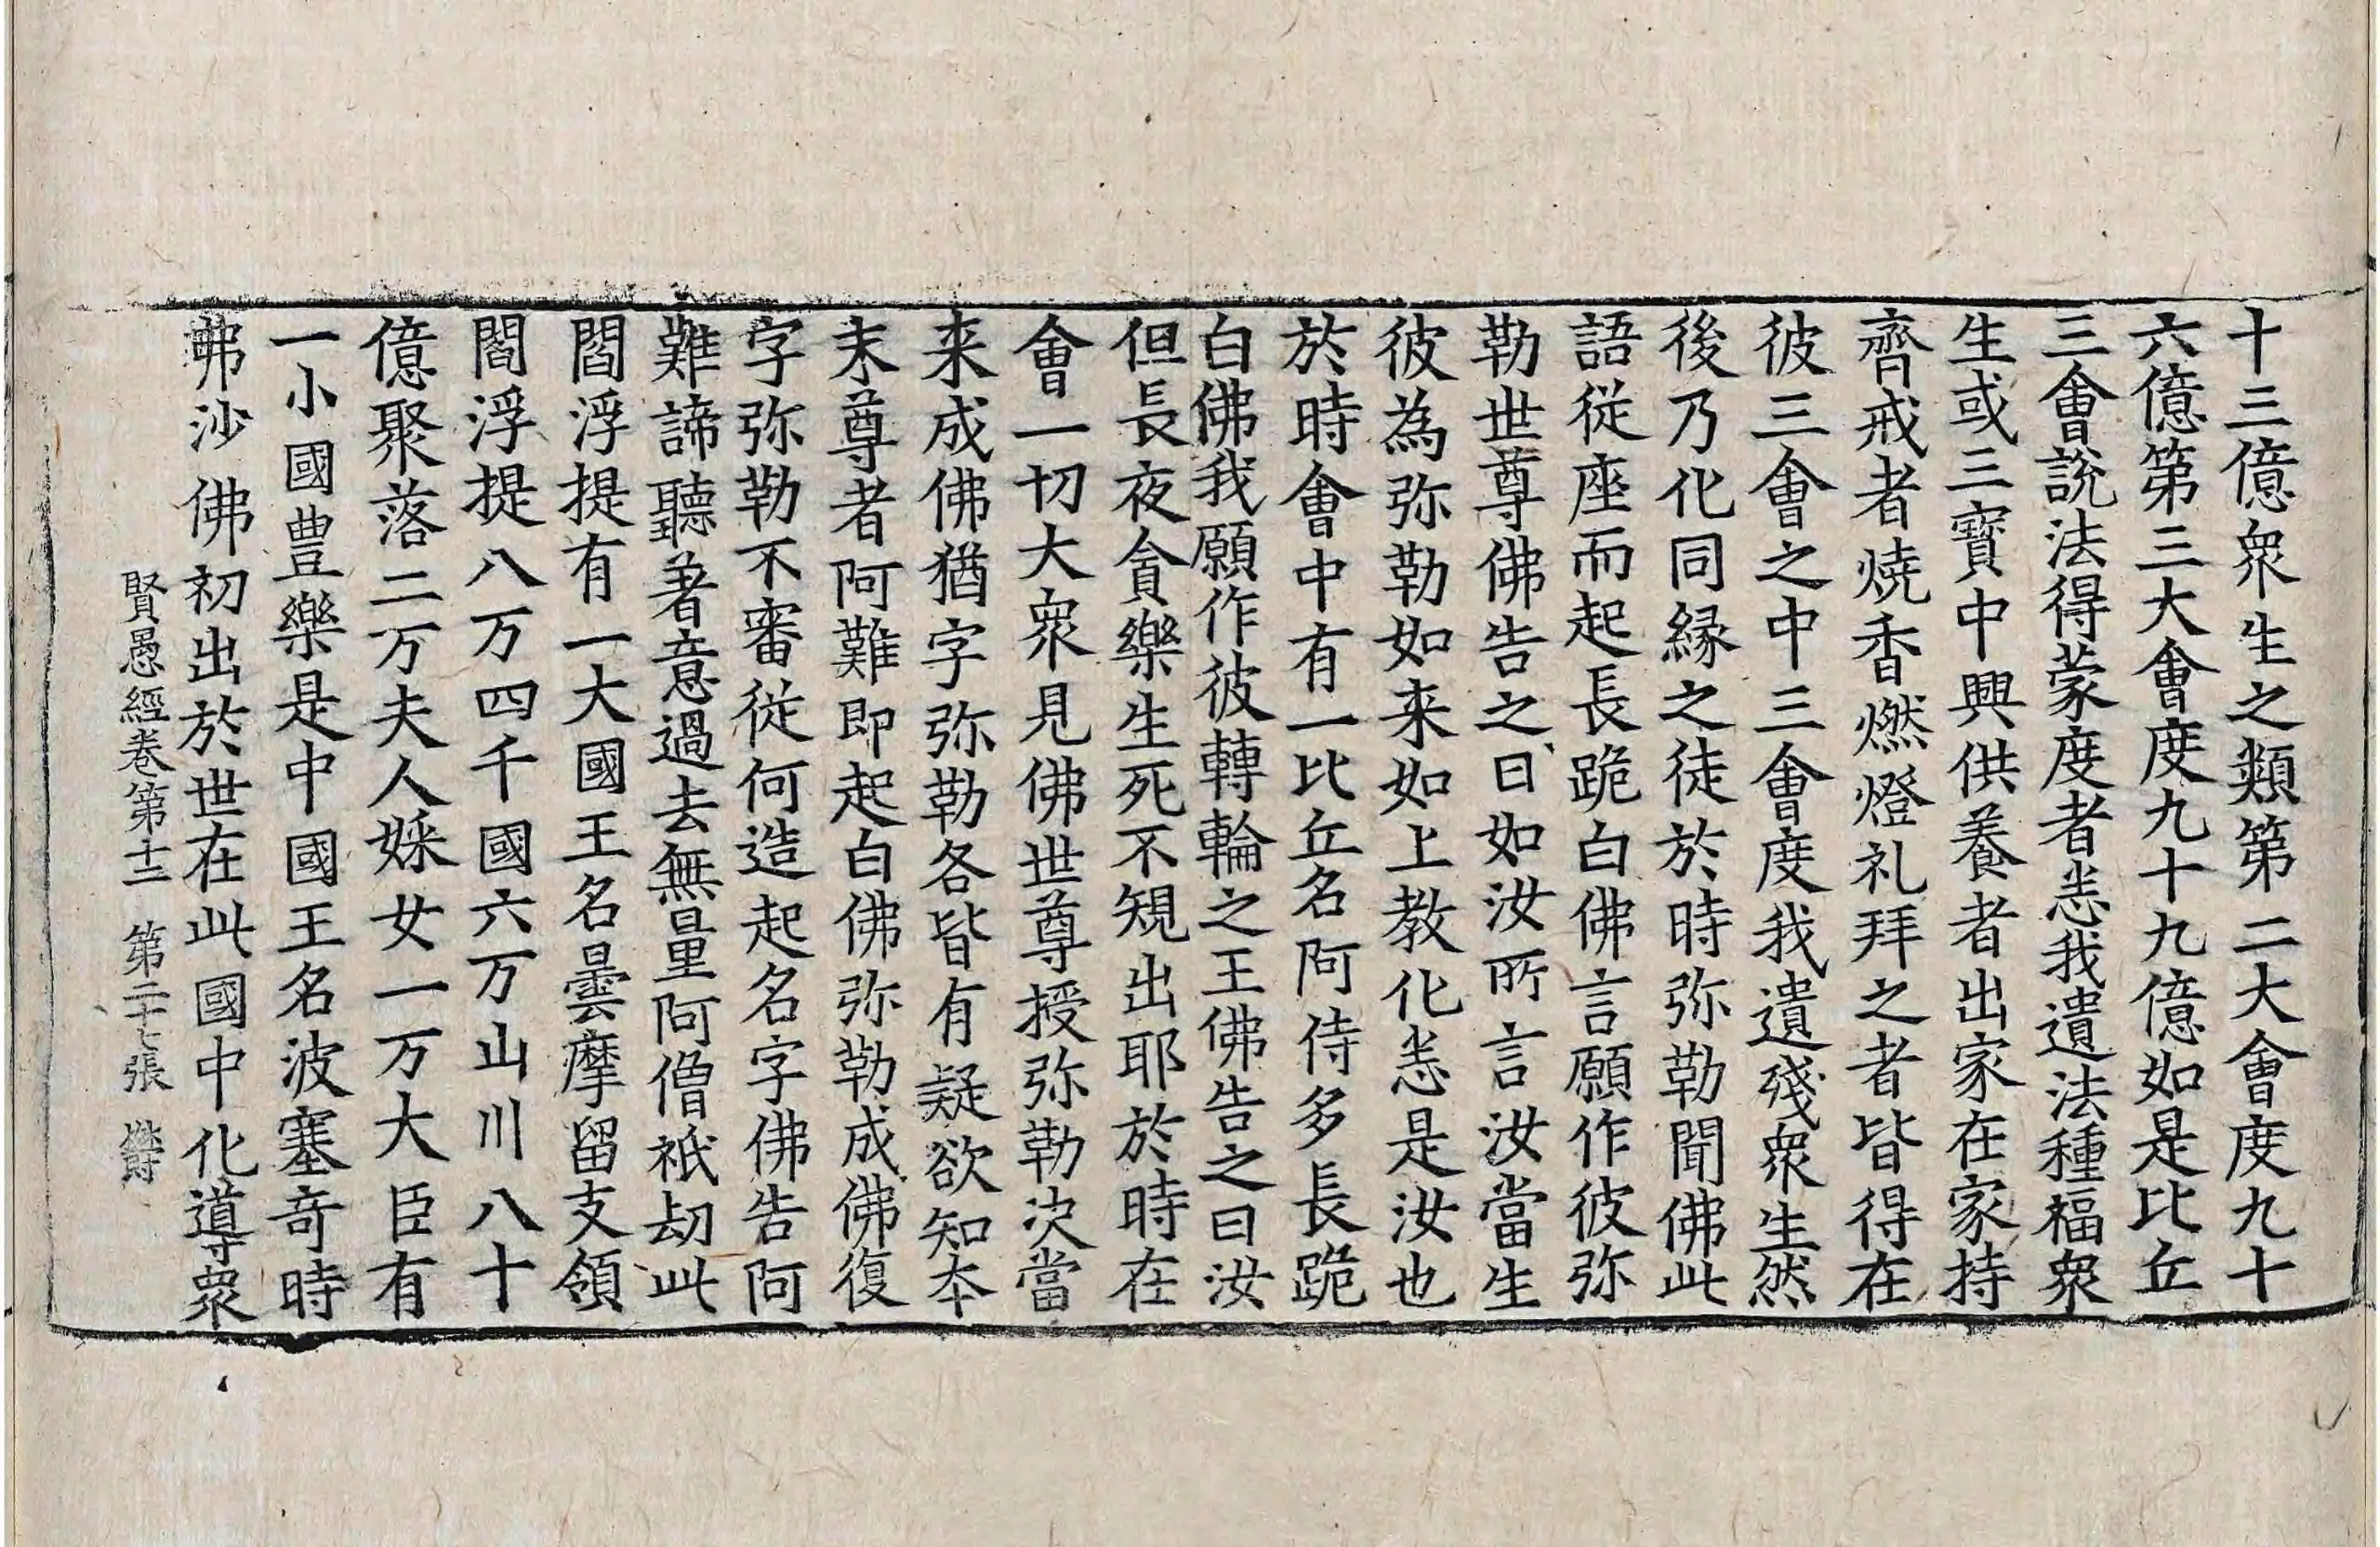 十三億衆生之類第二大會度九十
六億第三大會度九十九億如是比丘
三會說法得蒙度者悉我遺法種福衆
生或三寶中興供養者出家在家持
齊戒者燒香燃燈礼拜之者皆得在
彼三會之中三會度我遺殘衆生然
後乃化同緣之徒於時弥勒聞佛此
語從座而起長跪白佛言願作彼弥
勒世尊佛告之曰如汝所言汝當生
彼為弥勒如来如上教化悉是汝也
於時會中有一比丘名阿侍多長跪
白佛我願作彼轉輪之王佛告之曰汝
但長夜貪樂生死不規出耶於時在
會一切大衆見佛世尊授弥勒決當
来成佛猶字弥勒各皆有疑欲知本
末尊者阿難即起白佛弥勒成佛復
字弥勒不審從何造起名字佛告阿
難諦聽著意過去無量阿僧祇劫此
閻浮提有一大國王名曇摩留支領
閻浮提八万四千國六万山川八十
億聚落二万夫人婇女一万大臣有
一小國豊樂是中國王名波塞奇時
弗沙佛初出於世在此國中化導衆
賢愚經卷第十二 第二十七張 欝